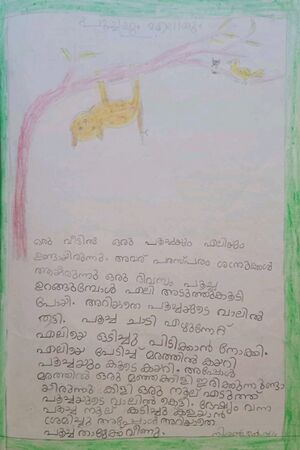 പൂച്ചയും എലിയും
ഒരു വീട്ടിൽ ഒരു പൂച്ചയും എലിയും
ഉണ്ടായിരുന്നു. അവർ പരസ്പരം ശത്രുക്കൾ
ആയിരുന്നു ഒരു ദിവസം പൂച്ച
ഉറങ്ങുമ്പോൾ എലി അടുത്തുകൂടി
പോയി. അറിയാതെ പൂച്ചയുടെ വാലിൽ
തട്ടി. പൂച്ച ചാടി എഴുന്നേറ്റ്
എലിയെ ഓടിച്ചു പിടിക്കാൻ നോക്കി.
എലിയെ പേടിച്ച് മരത്തിൽ കയറി
പൂച്ചയും കൂടെ കയറി. അപ്പോൾ
മരത്തിൽ ഒരു മഞ്ഞക്കിളി ഇരിക്കുന്നുണ്ടാ
യിരുന്നു. കിളി ഒരു നൂല് എടുത്ത്
പൂച്ചയുടെ വാലിൽ കെട്ടി. ദേഷ്യം വന്ന
പൂച്ച നൂല് കടിച്ചു കളയാൻ
ശ്രമിച്ചു അപ്പോൾ അറിയാതെ
പൂച്ച താഴേക്ക് വീണു.